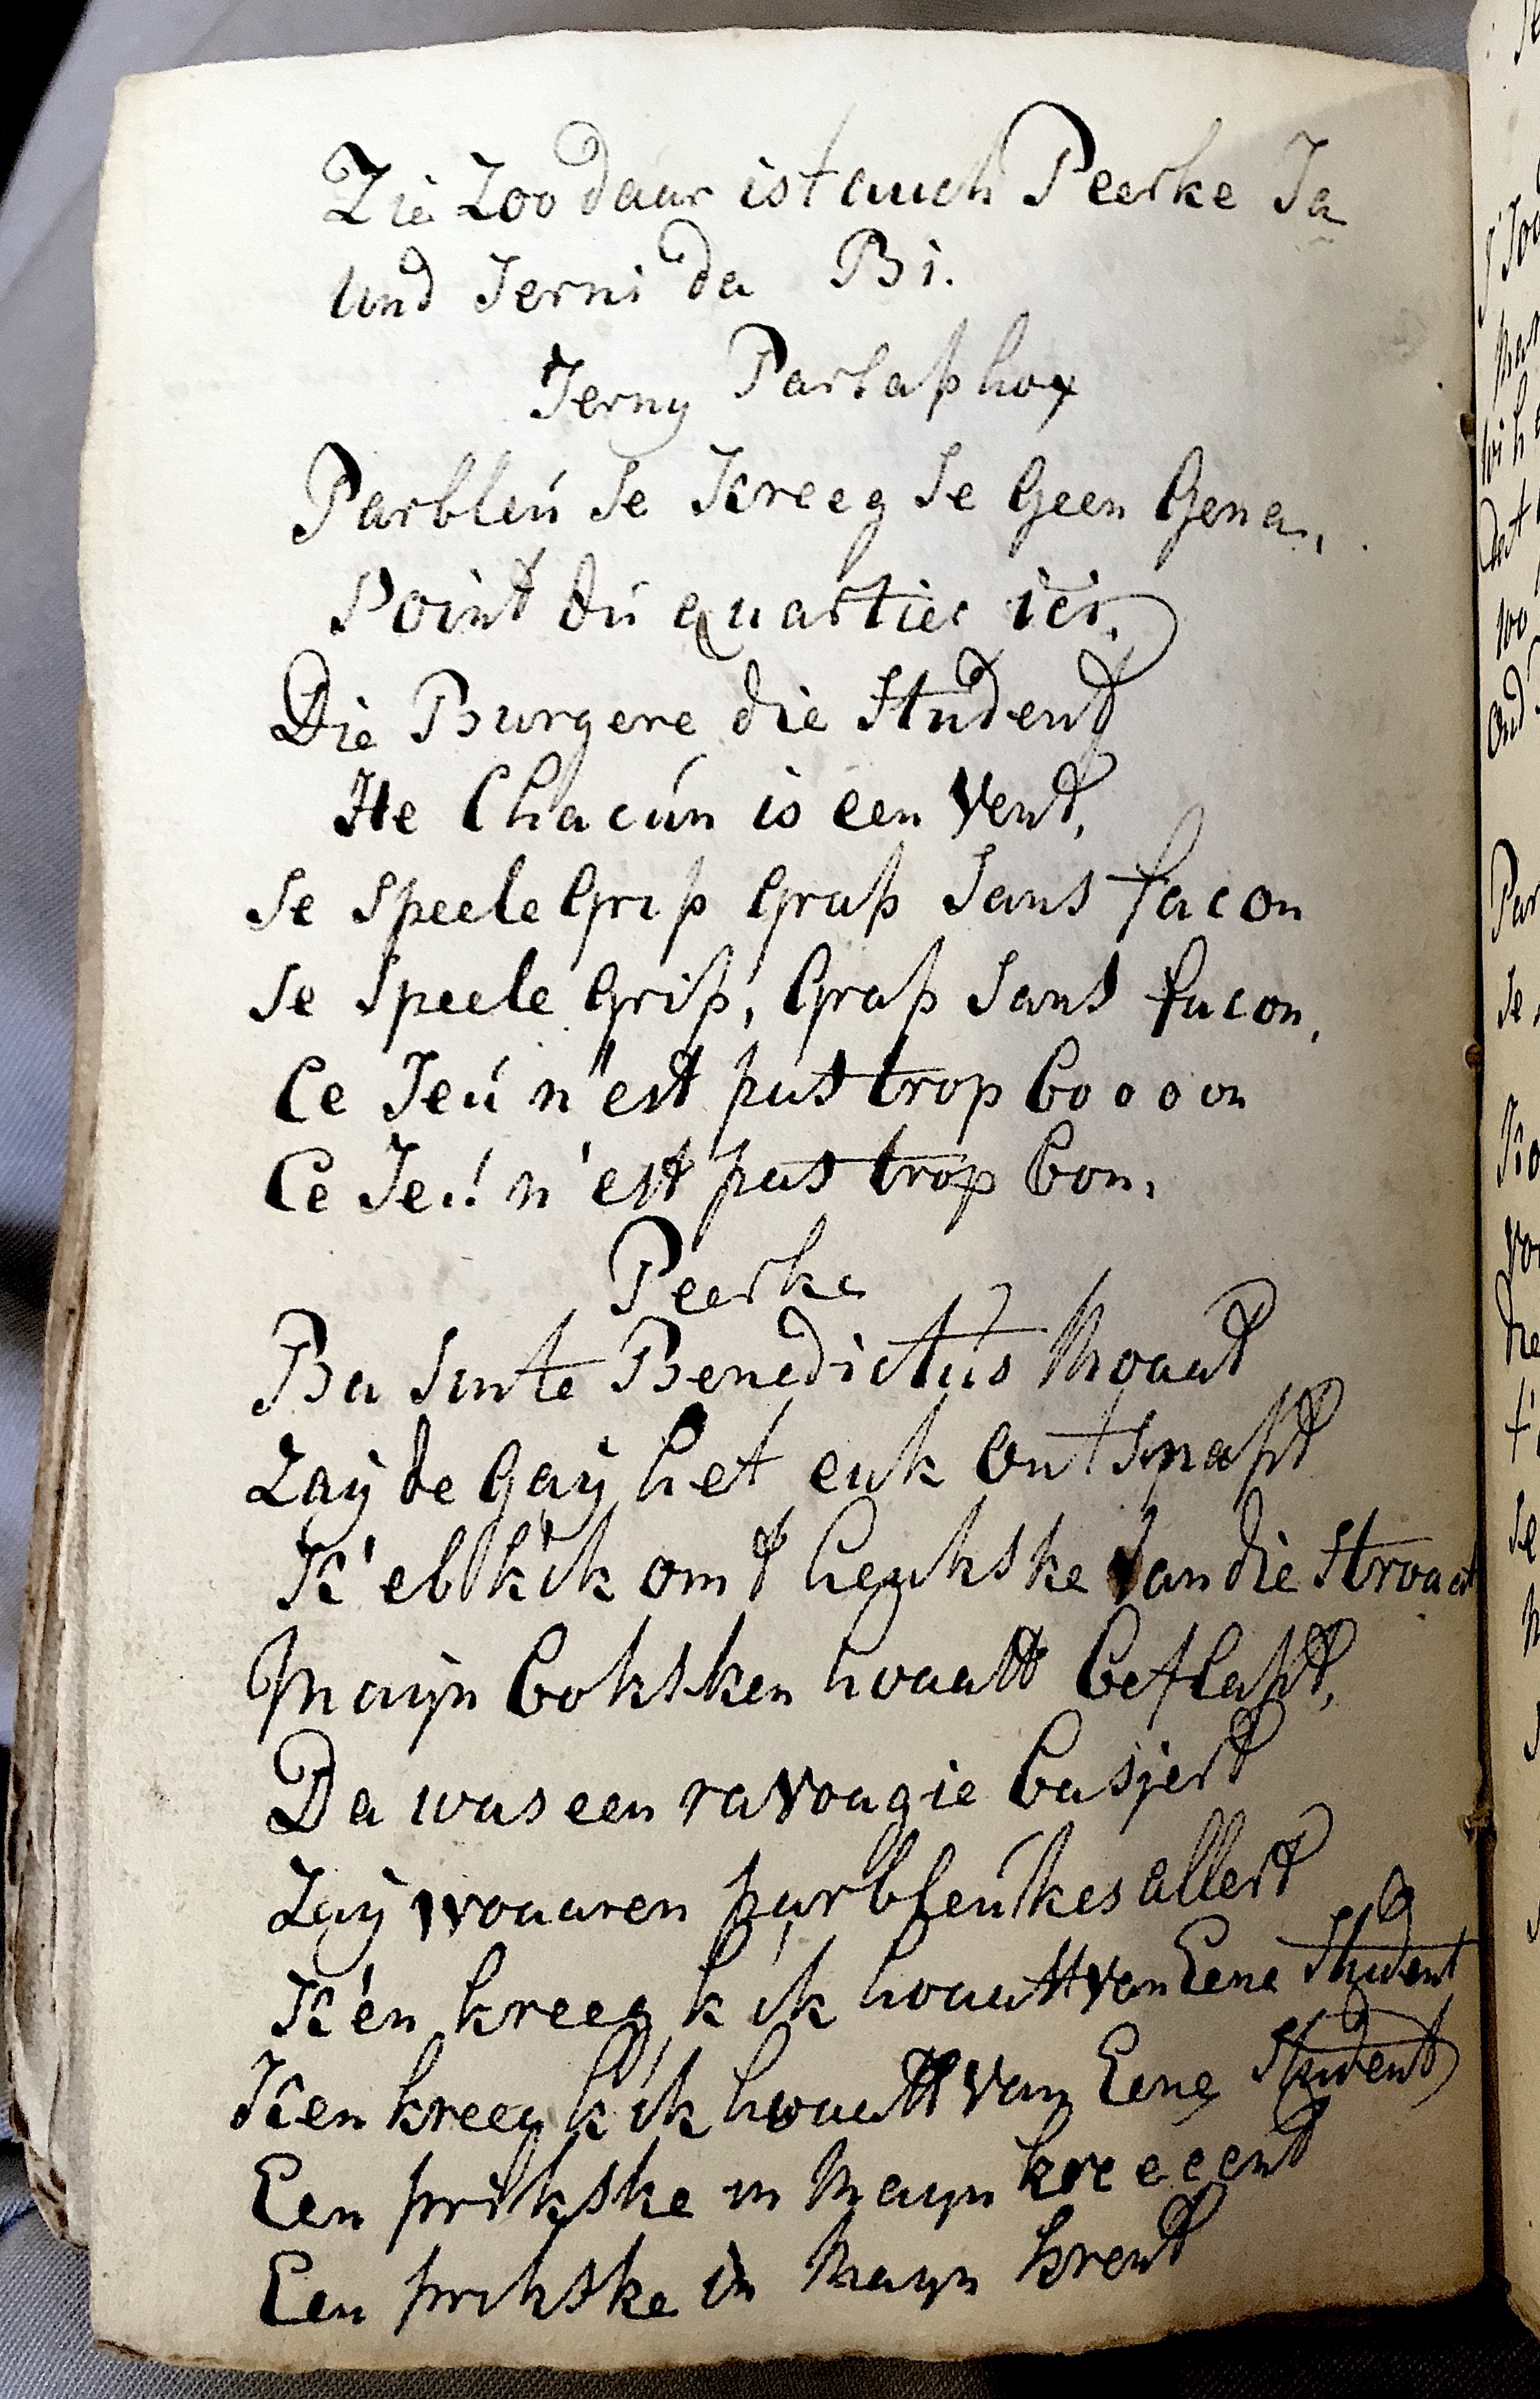 Zie Zoo daar ist auch Peerke Ja
Und Jerni da Bi.
Jerny Parlaphox
Parbleú Je Kreeg Je Geen Gena,
Point dú quartier ici,
Die Burgere die Student
He Chacún is een Vent,
Se Speele Grip Grap Sans facon
Se Speele Grip, Grap Sans facon,
Ce Jeú n'est pas trop booooon
Ce Jeú n'est pas trop bon,
Peerke
Ba Sinte Benedictus Moaat
Zaÿde Gaÿ het euk Ontsnapt
K'eb k'ik om t heukske Van die Stroaat
Mayn boksken hoaatt beflapt,
Da was een ravoagie basjert
Zaÿ woaaren parbleukes allert
K'en kreeg k'ik hoaatt van Eene Student
K'en kreeg k'ik hoaatt van Eene Student
Een prikske in Mayn kreeeent
Een prikske in Mayn krent